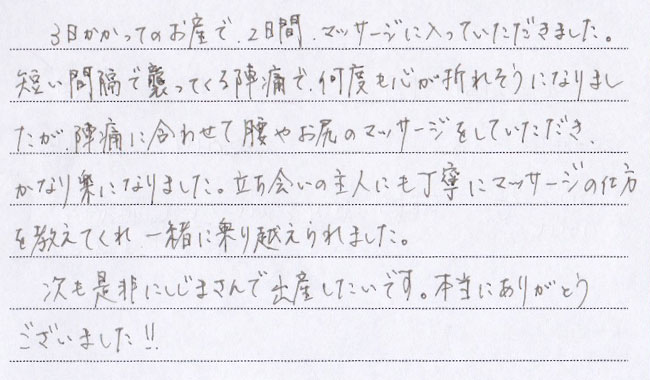 3日かかってのお産で、2日間、マッサージに入っていただきました。
短い間隔で襲ってくる陣痛で、何度も心が折れそうになりまし
たが、陣痛に合わせて腰やお尻のマッサージをしていただき、
かなり楽になりました。立ち会いの主人にも丁寧にマッサージの仕方
を教えてくれ、一緒に乗り越えられました。
次も是非にしじまさんで出産したいです。本当にありがとう
ございました!!